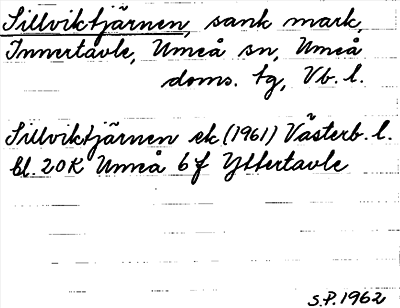 Sillviktjärnen, sank mark,
Innertavle, Umeå sn, Umeå
doms. tg, Vb. l.
Sillviktjärnen ek (1961) Västerb. l.
bl. 20K Umeå 6f Yttertavle
S.P. 1962